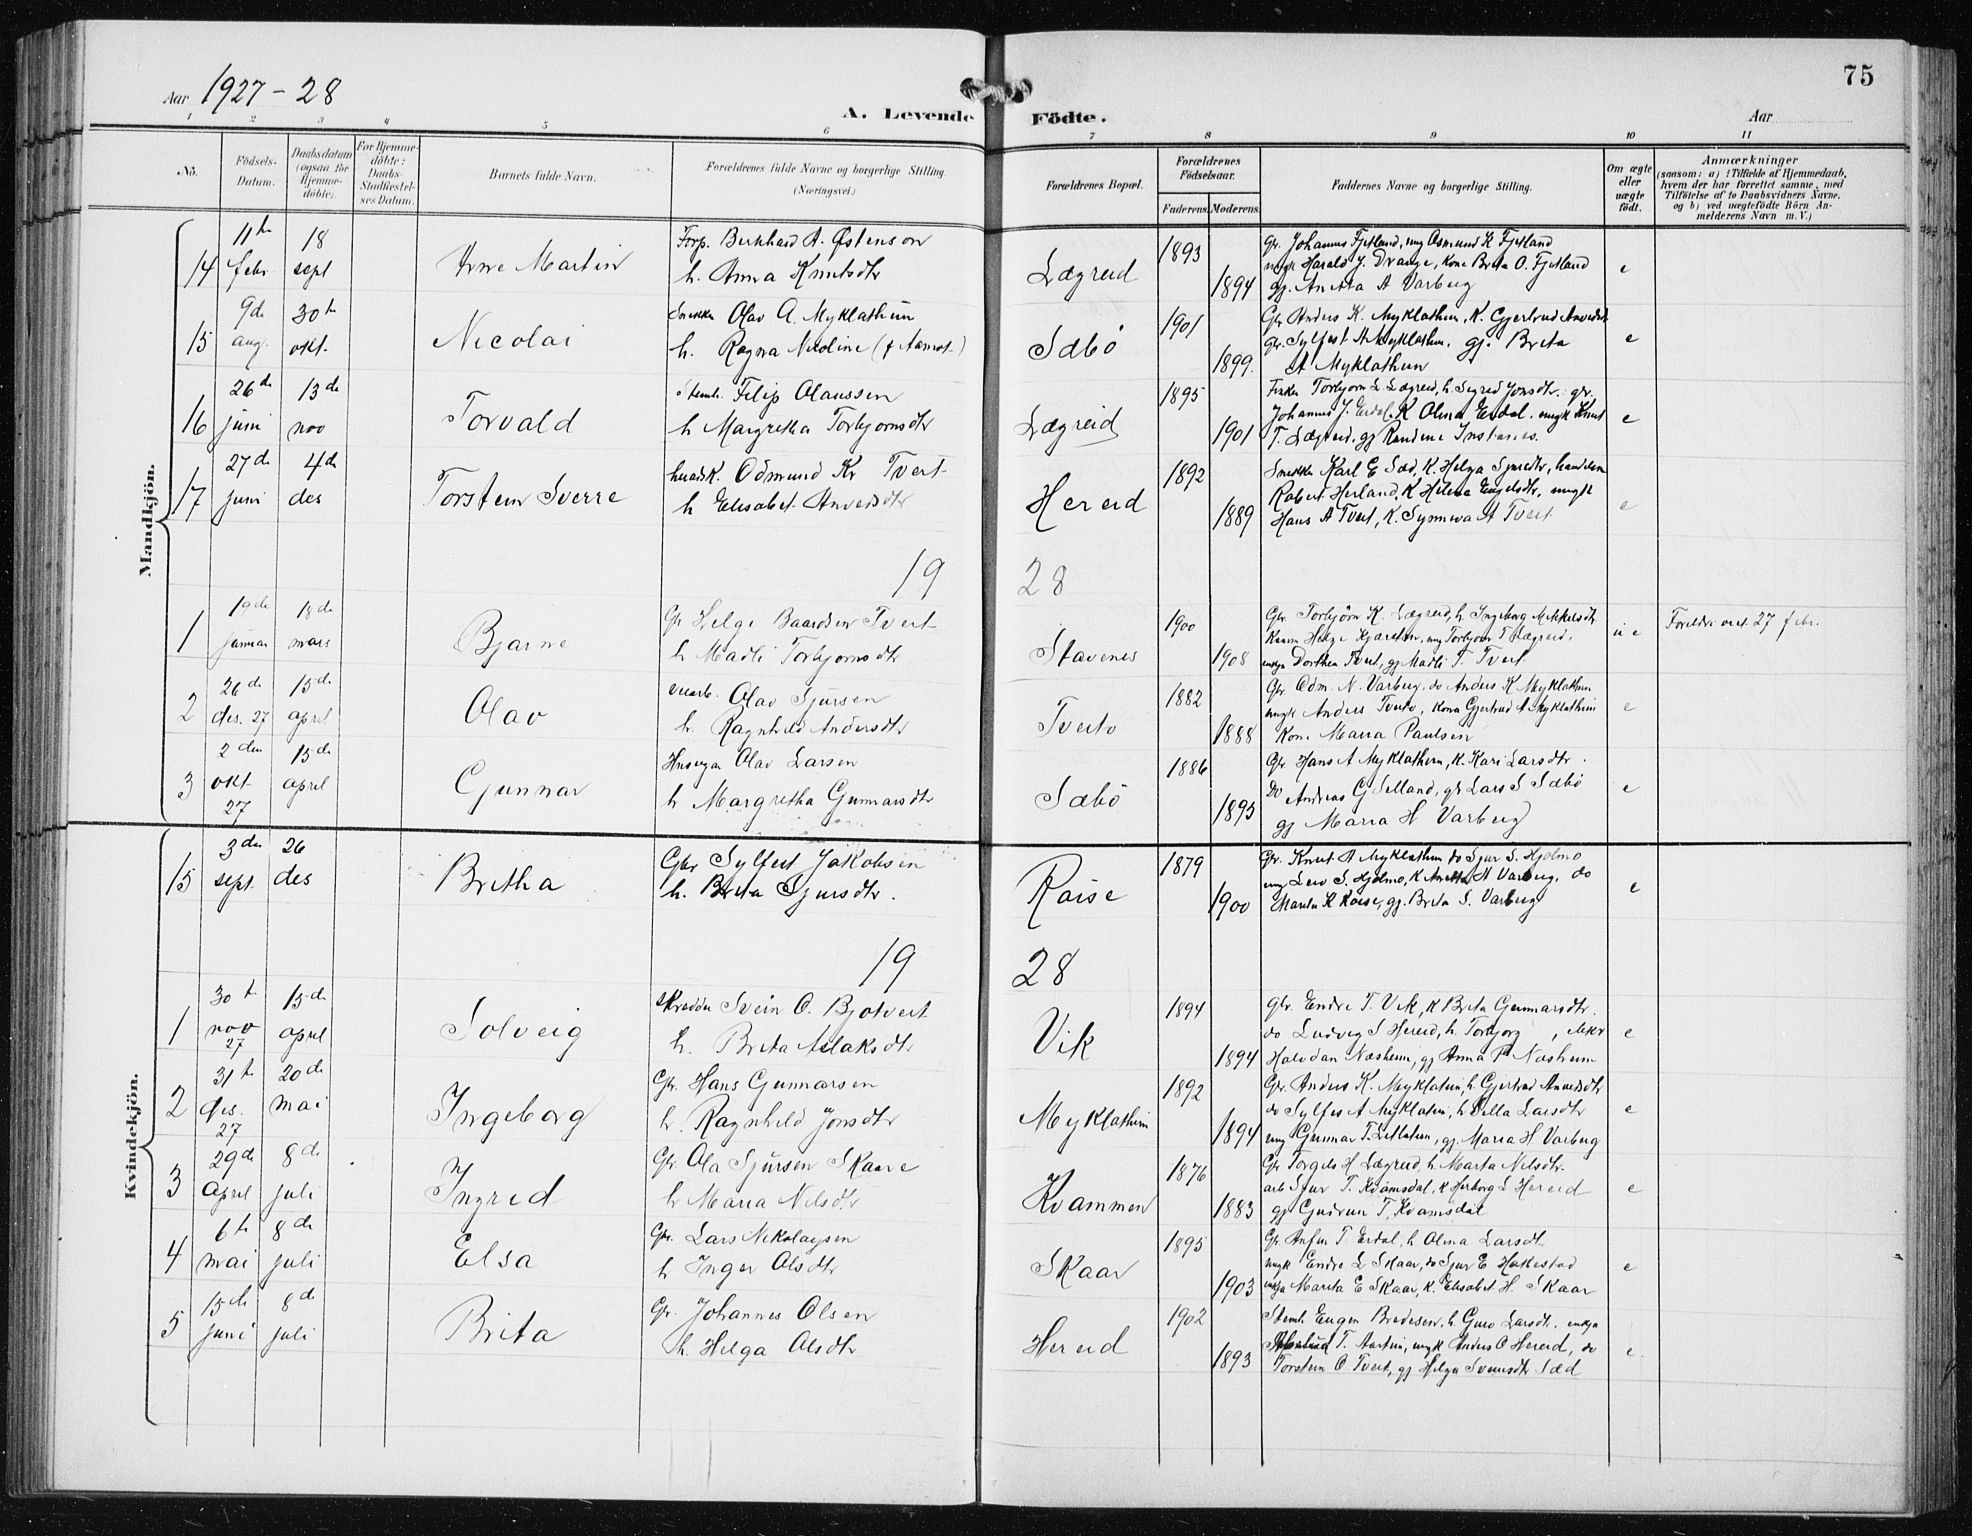 Aar 1927-28
A. Levende Födte.
Aar
75
1 2 3 4 5 6 7 8 9 10 11
No.
Födsels-Datum.
Daabsdatum (ogsaa for Hjemmedöbte).
For Hjemmedöbte: Daabs-Stadfæstelses Datum.
Barnets fulde Navn.
Forældrenes fulde Navne og borgerlige Stilling. (Næringsvei.)
Forældrenes Bopæl.
Forældrenes Födselsaar.
Faderens. Moderens.
Faddernes Navne og borgerlige Stilling.
Om ægte eller uægte födt.
Anmærkninger
(saasom: a) i Tilfælde af Hjemmedaab, hvem der har forrettet samme, med Tilföielse af to Daabsvidners Navne, og b) ved uægtefödte Börn Anmelderens Navn m. V.)
Mandkjön.
14 11te febr 18 sept Arne Martin Forp. Bernhard A. Østenson
h. Anna Knutsdtr Lægreid 1893 1894 e
Gr. Johannes Fjetland, ung Asmund K Fjetland
ungk Harald J. Drange, Kone Brita O. Fjetland
gj. Anetta A Varberg
15 9de aug. 30te okt. Nicolai Snekker Olav A. Myklathun
h. Ragna Nicoline Sæbø 1901 1899. e
Gbr Anders K. Myklathun, K. Gjertrud Anvedsdtr
gr. Sylfest A Myklathun, gj. Brita
A Myklathun
16 26de juni 13de nov Torvald Filip Olaussen
h Margretha Torbjornsdtr Lægreid 1895 1901 e
Torbjørn L Lægreid, h. Sigrid Jonsdtr. gr.
Johannes J. Erdal, K Olina Erdal, ungk Knut
T. Lægreid, gj Randine Instanes.
17 27de juni 4de des Torstein Sverre Odmund Kr Tveit
h Elisabet Anvedsdtr Hereid 1892 1889 e
Snekker Karl E Sæd, K. Helga Sjursdtr, handelsm
Robert Herland, K Helena Engelsdtr, ungk
Hans A Tveit, K. Synneva A Tveit
19 28
1 19de januar 18de mars Bjarne Gr Helge Baardsen Tveit
h Madli Torbjornsdtr Stavenes 1900 1908 u e Foreldre viet 27 febr.
Gbr. Torbjørn K. Lægreid, h. Ingeborg Mikkelsdtr
Helge Kjærstein, ung Torbjorn T Lægreid,
Dorthea Tveit, gj Madli T. Tveit
2 26de des. 27 15de april Olav Olav Sjursen
h. Ragnhild Andersdtr Tveito 1882 1888 e
Gbr. Odm. N. Varberg, do Anders K Myklathun
ungk Anders Tveito, Kona Gjertrud A Myklathun
Kone Maria Paulsen
3 2den okt 27 15de april Gunnar Olav Larsen
h Margretha Gunnarsdtr Sæbø 1886 1893 e
Gbr. Hans A Myklathun, K. Kari Larsdtr.
Do Andreas G Selland, gr Lars S Sæbø
gj Maria H Varberg
Kvindekjön.
15 3die sept. 26 des Britha Gbr Sylfest Jakobsen
h. Brita Sjursdtr. Røise 1879 1900 e
Gr. Knut A Myklathun do Sjur S. Hjelmo
ung Leiv S. Hjelmo, K Anetta H Varberg, do
Marita K Røise, gj. Brita S. Varberg
19 28
1 30te nov 27 15de april Solveig Skredder Svein O. Bjotveit
h. Brita Aslaksdtr Vik 1894 1894 e
Gbr. Endre T. Vik, K Brita Gunnarsdtr.
do Ludvig S Hereid, h. Torbjorg
Halvdan Næsheim, gj Anna P Næsheim
2 31te des. 27 20de mai Ingeborg Gbr. Hans Gunnarsen
h. Ragnhild Jonsdtr Myklathun 1892 1894 e
Gbr. Anders K. Myklatun, h. Gjertrud Anvedsdtr
do Sylfes A Myklatun, h Silla Larsdtr
ung Gunnar T. Litlatun, gj. Maria H. Varberg
3 29de april 8de juli Ingrid Gbr. Ola Sjursen Skaare
h Maria Nilsdtr Kvammen 1876 1883 e
Gr Torgils H Lægreid, h. Marta Nilsdtr.
arb Sjur T. Kvamsdal, K Herborg S Hereid
gj Gudrun T. Kvamsdal
4 6te mai 8de juli Elsa Gbr. Lars Nikolaysen
h Inger Olsdtr Skaar 1895 1903 e
Gr. Anfin T. Erdal, h Olina Larsdt
ungk Endre L Skaar, do Sjur E Hakestad
Marita E Skaar, K. Elisabet H. Skaar
5 15de juni 8de juli Brita Gbr. Johannes Olsen
h. Helga Olsdtr Hereid 1902 1893 e.
Eugen Bredesen, h Guro Larsdtr.
T. Aartun, ungk Anders O Hereid, do
Torstein O Tveit, gj Helga Svensdtr Sæd